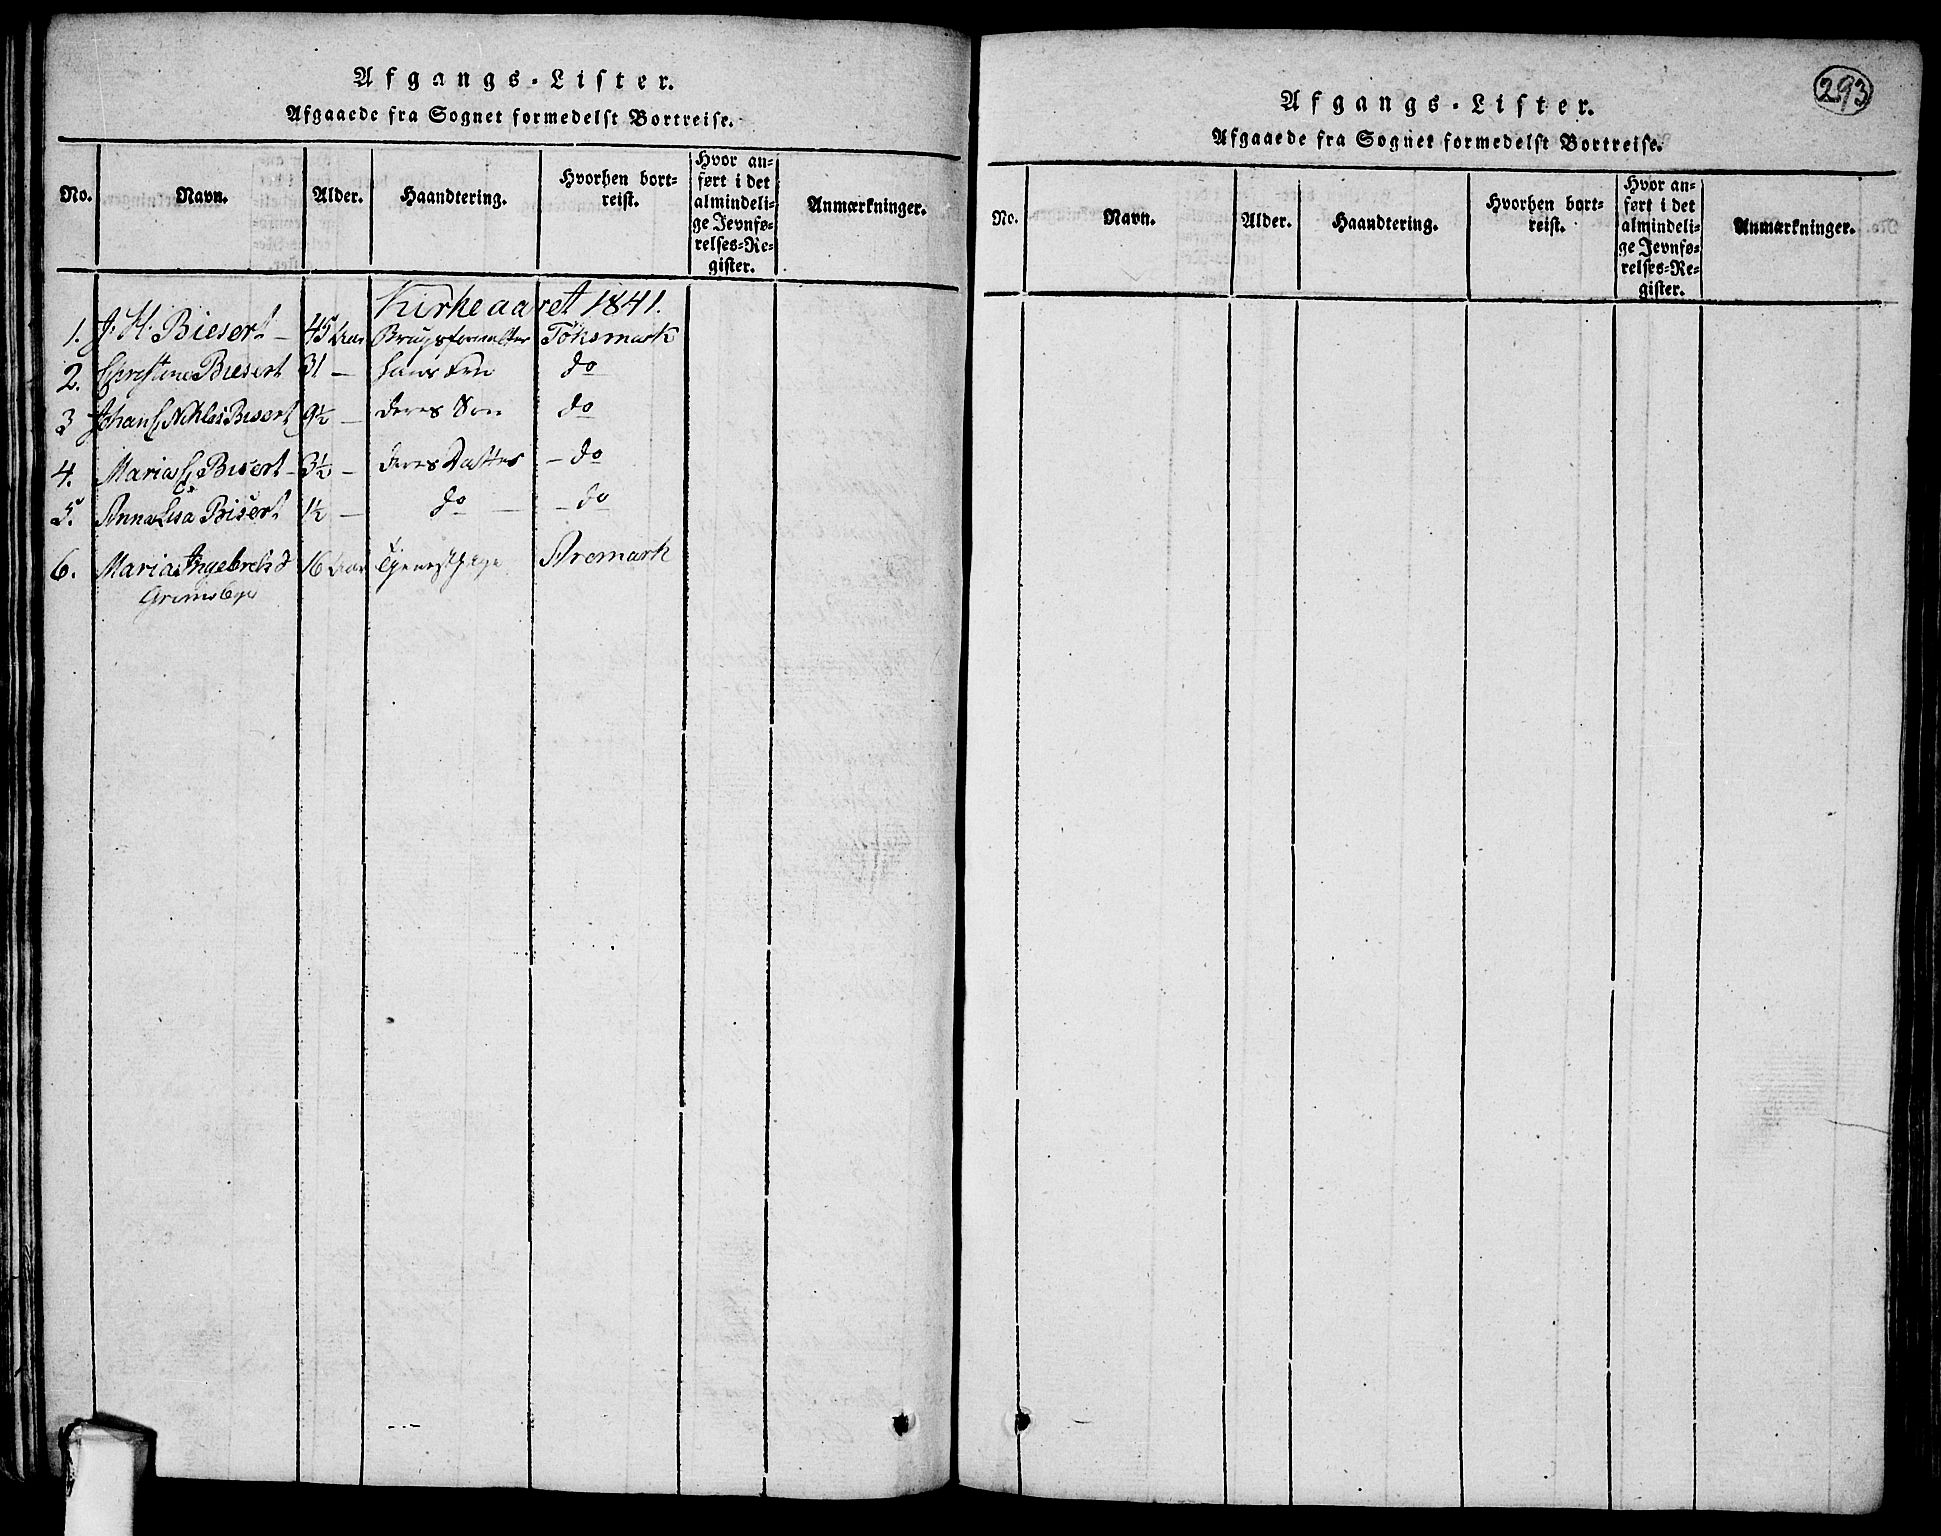 Afgangs-Lister.
Afgaaede fra Sognet formedelst Bortreise.
No. Navn. Alder. Haandtering. Hvorhen bortreist. Hvor anført i det almindelige Jevnførelses-Register. Anmærkninger.
Kirkeaaret 1841.
1. J. H. Biesert 45 Aar Tøksmark
2. Christine Biesert 31 — hans Kone do
3 Johan Bisert 9½ — deres Søn do
4. Maria C Bisert 3½ — deres Datter — do
5. Anna Lisa Bisert 1½ — do — do
6. Maria Ingebretsd 16 Aar Tjenestpige Aremark
Grimsbye
293
Afgangs-Lister.
Afgaaede fra Sognet formedelst Bortreise.
No. Navn. Alder. Haandtering. Hvorhen bortreist. Hvor anført i det almindelige Jevnførelses-Register. Anmærkninger.